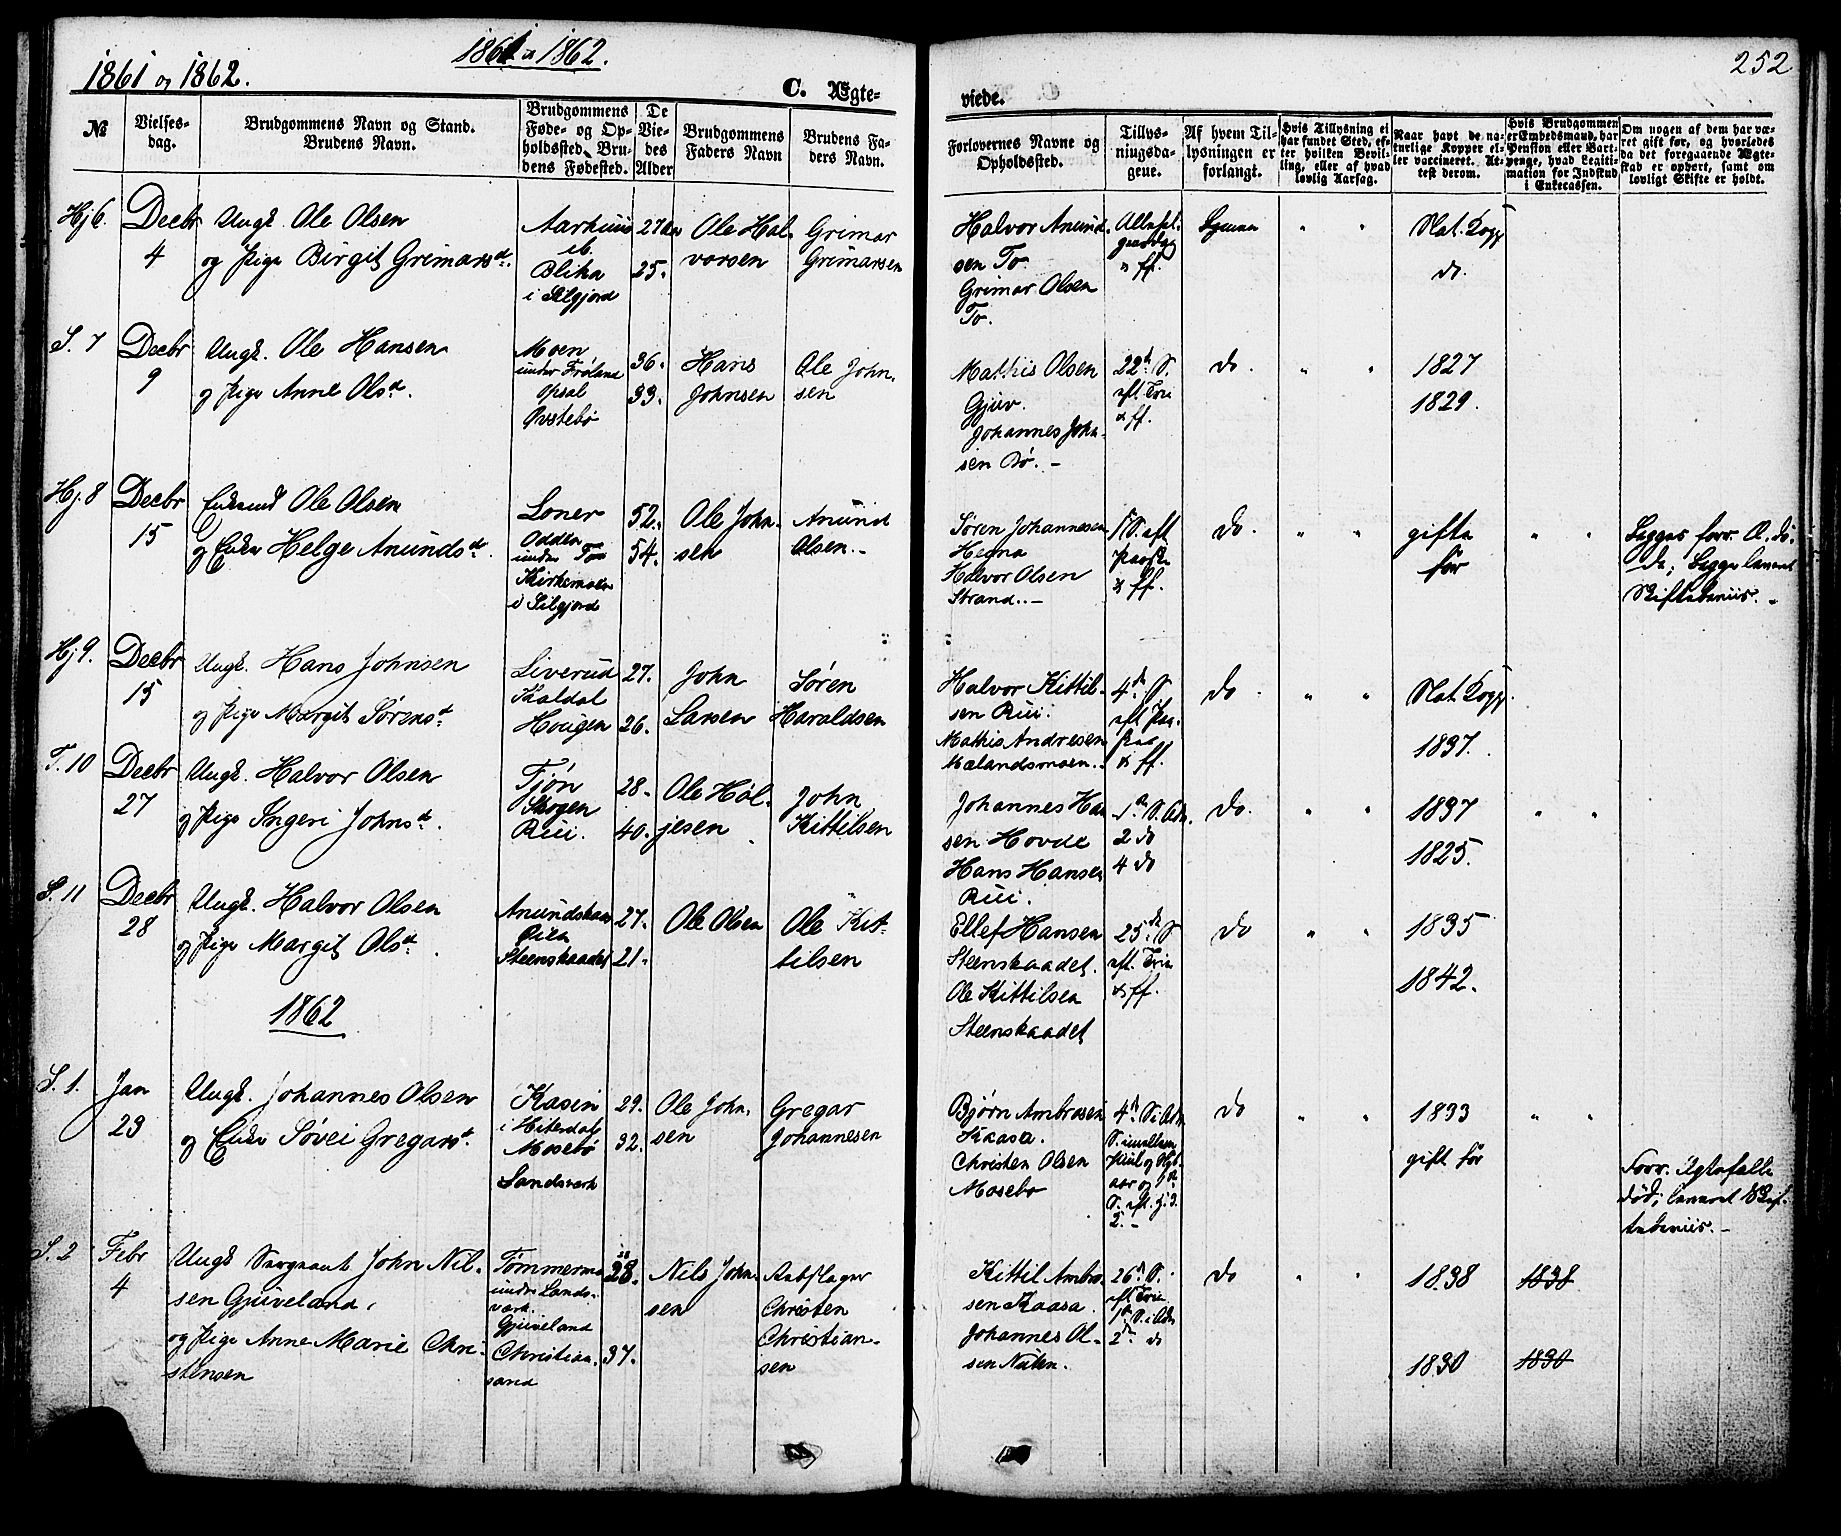 1861 og 1862.
1861 & 1862.
C. Ægte-
viede.
252
№
Vielses-
dag.
Brudgommens Navn og Stand.
Brudens Navn.
Brudgommens
Føde- og Op-
holdssted. Bru-
dens Fødested.
De
Vie-
des
Alder
Brudgommens
Faders Navn
Brudens Fa-
ders Navn.
Forlovernes Navne og
Opholdssted.
Tillys-
ningsda-
gene.
Af hvem Til-
lysningen er
forlangt.
Hvis Tillysning ei
har fundet Sted, ef-
ter hvilken Bevil-
ling, eller af hvad
lovlig Aarsag.
Naar havt de na-
turlige Kopper el-
ler vaccineret. At-
test derom.
Hvis Brudgommen
er Embedsmand, har
Pension eller Vart-
penge, hvad Legiti-
mation for Indskud
i Enkecassen.
Om nogen af dem har væ-
ret gift før, og hvorledes
da det foregaaende Ægte-
skab er ophørt, samt om
lovligt Skifte er holdt.
Hj 6.
Decbr
4
Ungk. Ole Olsen
og Pige Birgit Grimarsd.
Aarhuus
ib.
Blika
i Silgjord
27
25.
Ole Hal-
vorsen
Grimar
Grimarsen
Halvor Anund-
sen To.
Grimar Olsen
To.
& ff.
" "
Nat. Kopp
do.
S. 7
Decbr
9
Ungk. Ole Hansen
og Pige Anne Olsd.
Moen
under Frøland
Opsal
Ovstebø
36.
33.
Hans
Johnsen
Ole John-
sen
Mathis Olsen
Gjuv.
Johannes John-
sen Bø. -
22d S.
eft. Trin
& ff.
do.
" "
1827
1829.
Hj. 8
Decbr
15
Enkemd Ole Olsen
og Enke Helge Anundsd.
Loner
Odden
under To
Kirkemoen
i Silgjord
52.
54.
Ole John-
sen
Anund
Olsen. -
Søren Johannesen
Hegna
Halvor Olsen
Strand. -
S. eft
Paaske
& ff.
do.
" "
gifte
før
" "
Begges forr. Æ. dø-
de; Begge leveret
Skiftebeviis. -
Hj 9.
Decbr
15
Ungk. Hans Johnsen
og Pige Margit Sørensd.
Liverud
Kaldal
Hougen
27.
26.
John
Larsen
Søren
Haraldsen
Halvor Kittil-
sen Rui.
Mathis Andresen
Mælandsmoen.
4d S
eft Paa-
ske
& ff.
do.
" "
Nat. Kopp.
1837.
T. 10
Decbr
27
Ungk. Halvor Olsen
og Pige Ingeri Johnsd.
Tjøn
Skogen
Rui.
28.
40.
Ole Høl-
jesen
John
Kittilsen
Johannes Han
sen Hovde
Hans Hansen
Rui.
1ste S. Adv.
2 do
4 do
do.
" "
1837
1825.
" "
S. 11
Decbr
28
Ungk. Halvor Olsen
og Pige Margit Olsd.
Steenskaadet
27.
21.
Ole Olsen
Ole Kit-
tilsen
Ellef Hansen
Steenskaadet.
Ole Kittilsen
Steenskaadet
25de S
eft. Trin
& ff.
do
" "
1835
1842.
1862
S. 1.
Jan
23
Ungk. Johannes Olsen
og Enke Søvei Gregarsd.
Kasin
i Hiterdal
Mosebø
Landsverk
29.
32.
Ole John-
sen
Gregar
Johannesen
Bjørn Ambrosen
Kaasa.
Christen Olsen
Mosebø
4d S. i Adv
S. imellem
Juul og Nyt-
aar og 1st
S. eft. H. 3
K. -
do
" "
1833
gift før
" "
Forr. Ægtefælle
død; leveret Skif-
tebeviis. -
S. 2
Febr
4
Ungk Sergeant John Nil-
sen Gjuveland,
og Pige Anne Marie Chri-
stensen
Tømmermo
under Lands-
verk.
Gjuveland
Christian-
sand
28.
37.
Nils John-
sen
Christen
Christian-
sen
Kittil Ambro-
sen Kaasa.
Johannes Ol-
sen Nuten.
26d S.
eft Trin
1st S. i Adv
2d do
do
" "
1838
1830
1838
1830